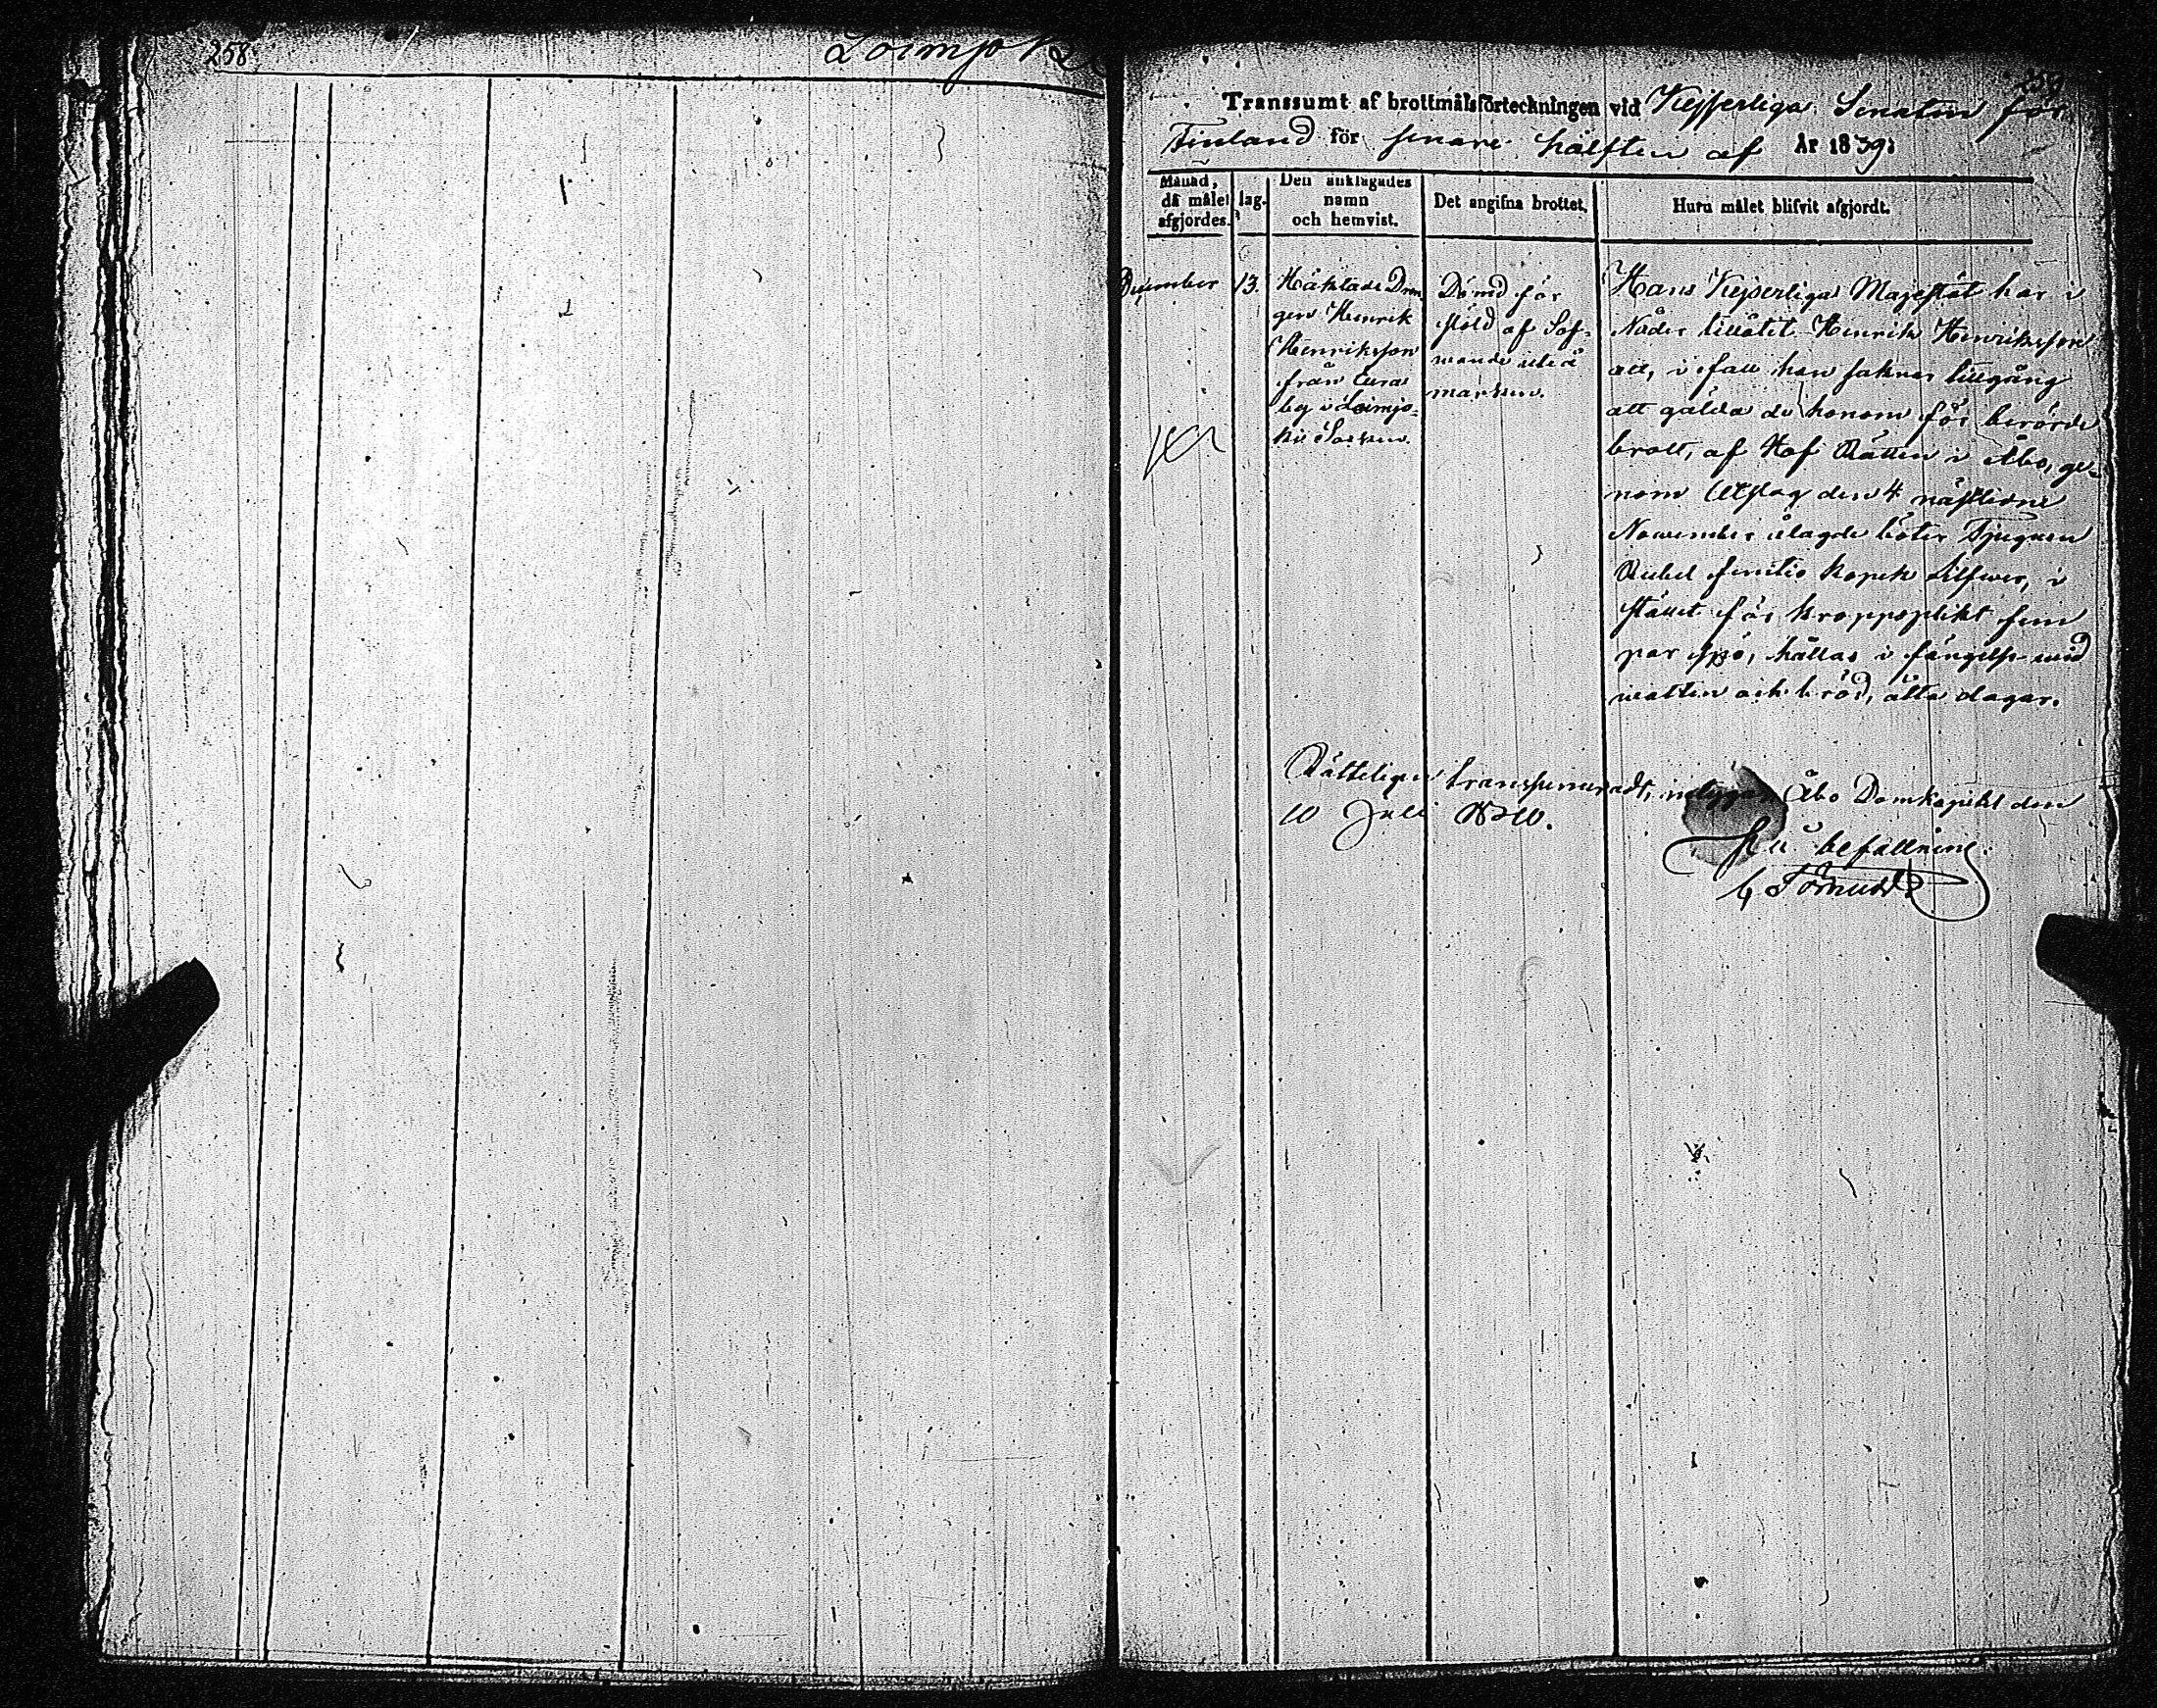 258.
Loimjo
259
Transsumt af brottmålsförteckningen vid Kejserliga Senaten för
Finland för senare hälften af År 1839.
Månad, då målet afgjordes.
Dag.
Den anklagades namn och hemvist.
Det angifna brottet.
Huru målet blifvit afgjordt.
December
13.
Häktade Drän-
gen Henrik
Henriksson
från Eura
by i Loimjo-
ki Socken.
Dömd för
stöld af Sof-
wande ute å
marken.
Hans Kejserliga Majestät har i
Nåder tillåtit Henrik Henriksson
att, i fall han saknar tillgång
att gälda de honom för berörde
brott, af Hof Rätten i Åbo, ge-
nom Utslag den 4 nästledne
November ålagde böter Tjugu en
Rubel femtio kopek Silfwer, i
stället för kroppsplikt fem
par spö, hållas i fängelse wid
watten och bröd, åtta dagar.
Rätteligen transsumeradt, intygar Åbo Domkapitel den
10 Juli 1840.
På befallning: